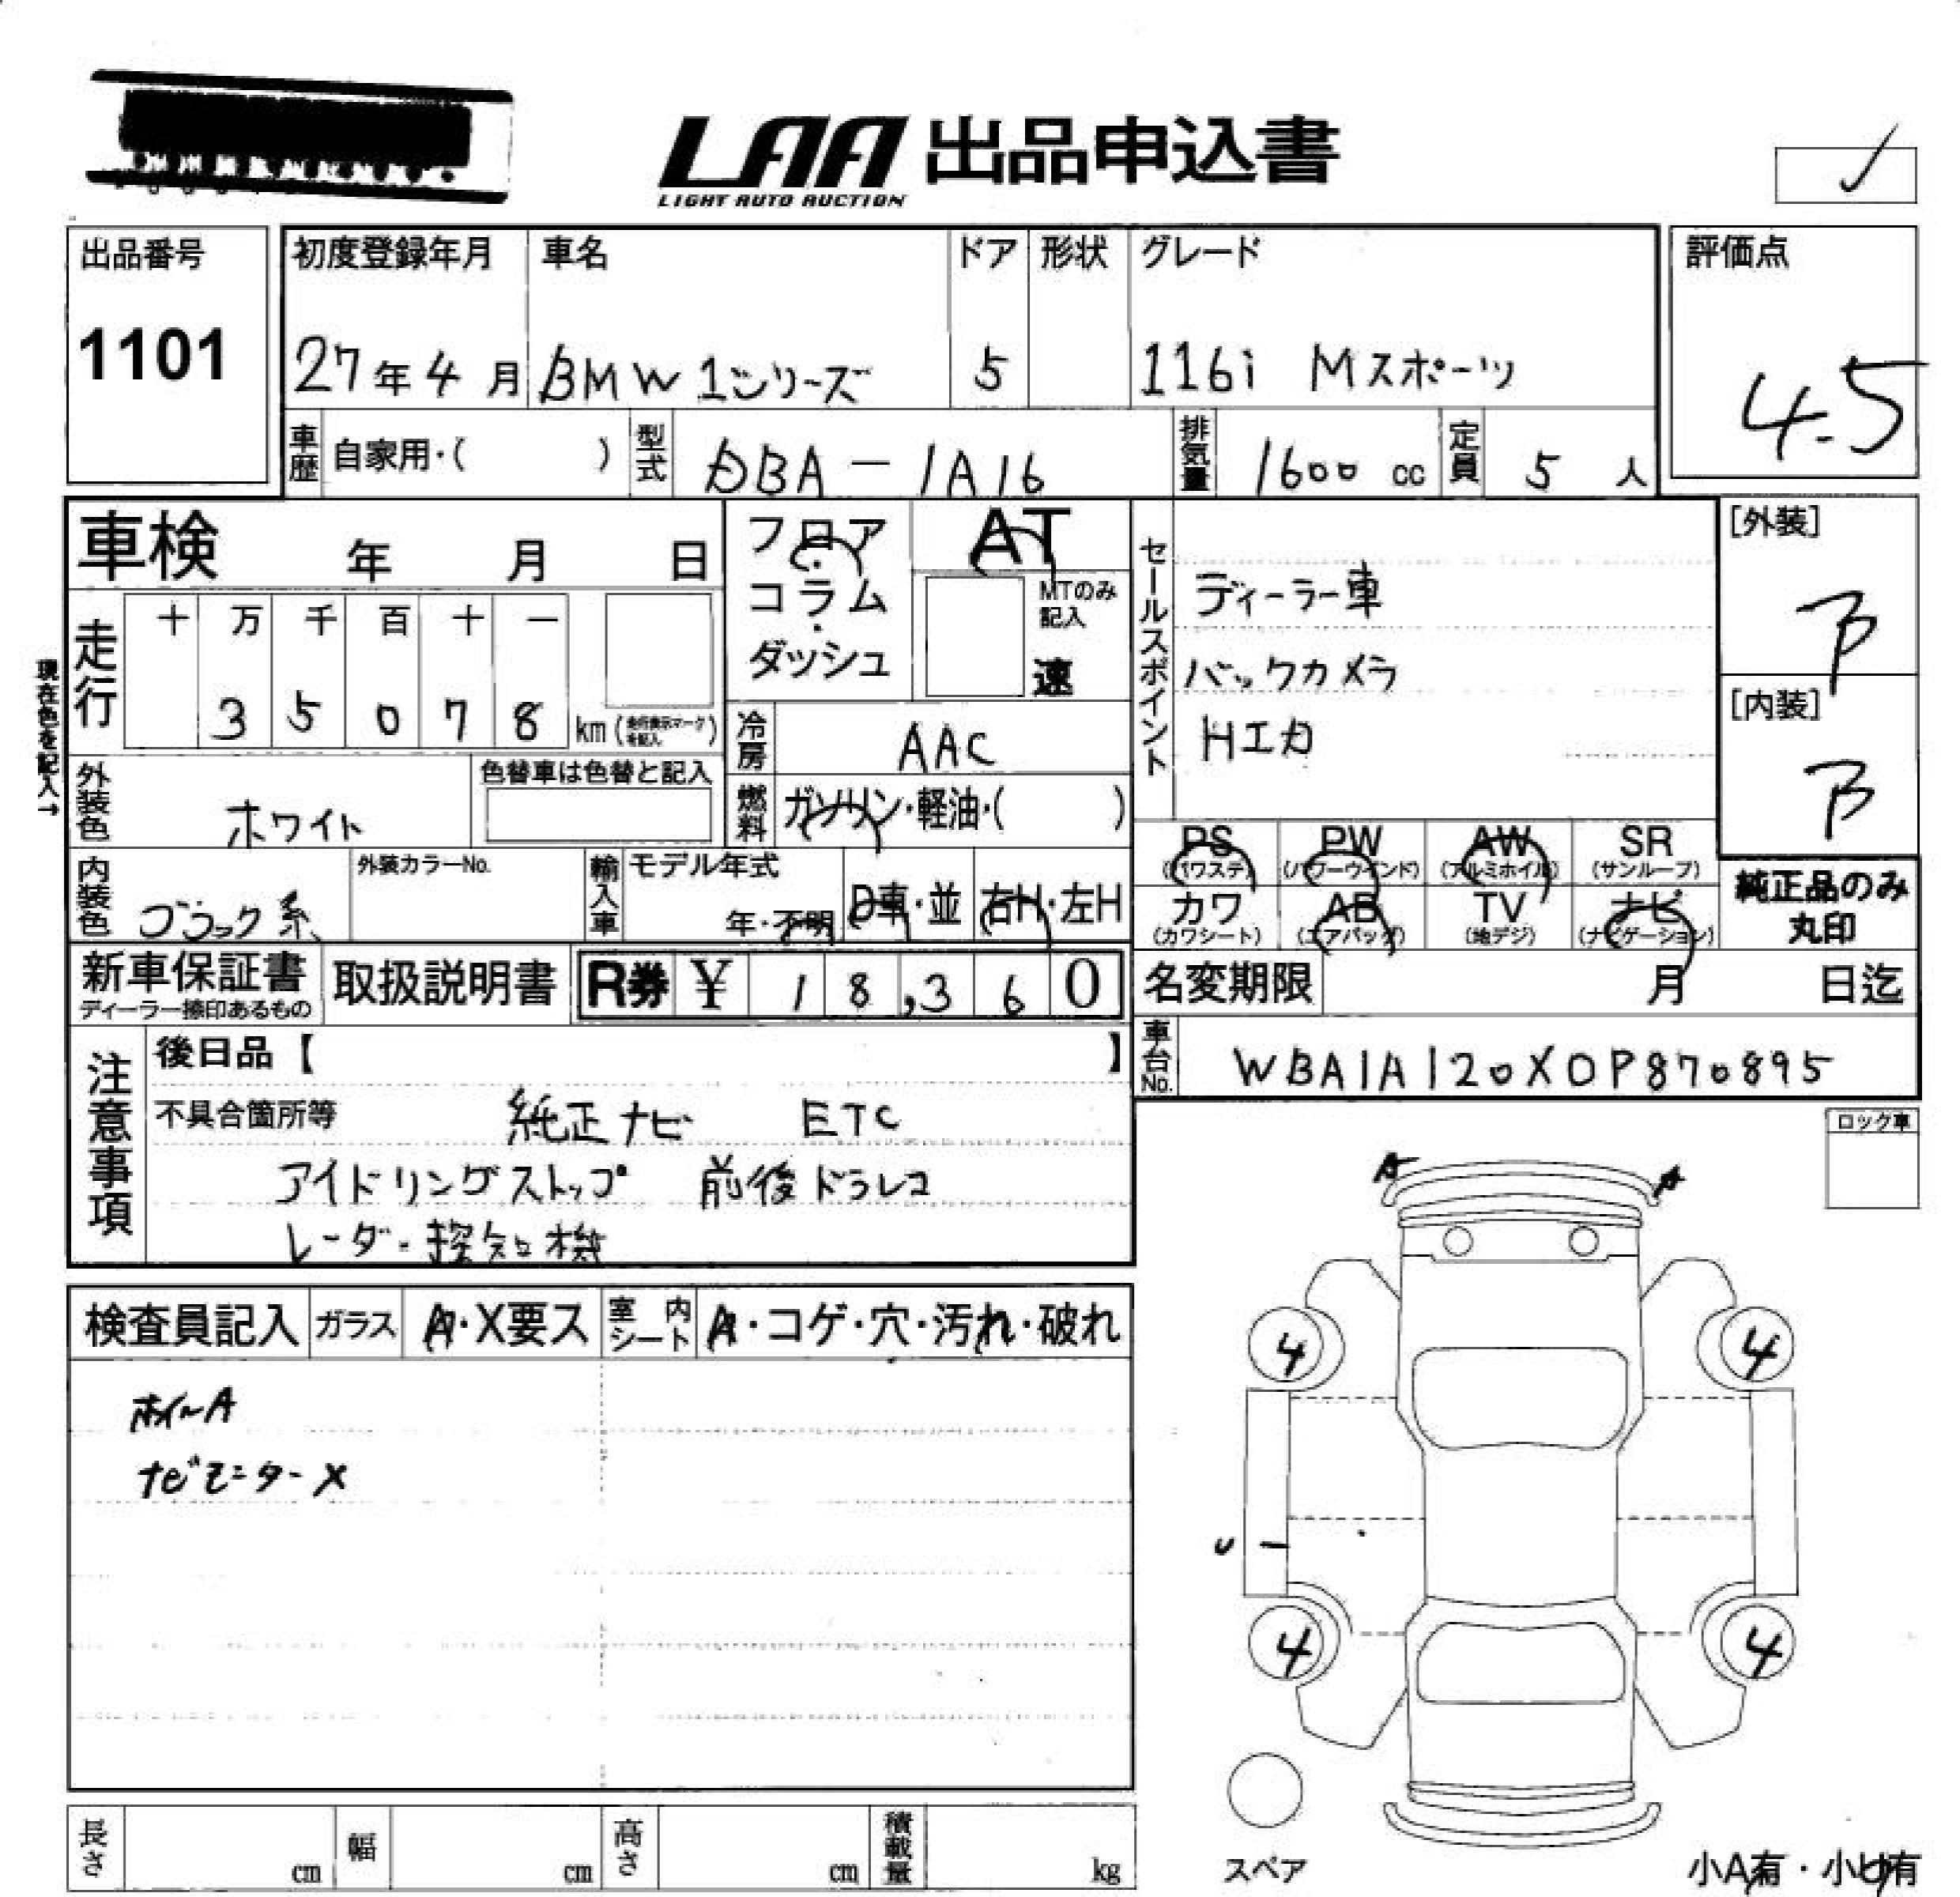 LAA 出品申込書
LIGHT AUTO AUCTION
出品番号
1101
初度登録年月
27年4月
車名
BMW 1シリーズ
ドア
5
形状
グレード
116i Mスポーツ
評価点
4.5
車歴
自家用・( )
型式
DBA-1A16
排気量
1600 cc
定員
5 人
車検 年 月 日
現在色を記入→
走行
十 万 千 百 十 一
3 5 0 7 8 km (走行表示マークを記入)
フロア・コラム・ダッシュ
AT
MTのみ記入
速
冷房
AAC
燃料
ガソリン・軽油・( )
セールスポイント
ディーラー車
バックカメラ
Hエカ
[外装]
B
[内装]
B
外装色
ホワイト
色替車は色替と記入
内装色
ブラック系
外装カラーNo.
輸入車
モデル年式
年・不明
D車・並
右H・左H
PS
(パワステ)
PW
(パワーウインド)
AW
(アルミホイル)
SR
(サンルーフ)
カワ
(カワシート)
AB
(エアバッグ)
TV
(地デジ)
ナビ
(ナビゲーション)
純正品のみ
丸印
新車保証書
ディーラー捺印あるもの
取扱説明書
R券 ¥ 18,360
名変期限 月 日迄
車台No.
WBA1A120X0P870895
注意事項
後日品【 】
不具合箇所等 純正ナビ ETC
アイドリングストップ 前後ドラレコ
レーダー探知機
ロック車
検査員記入
ガラス
A・X要ス
室内シート
A・コゲ・穴・汚れ・破れ
ホイールA
ナビモニターX
A
A
4
4
U
4
4
スペア
小A有・小U有
長さ cm
幅 cm
高さ cm
積載量 kg